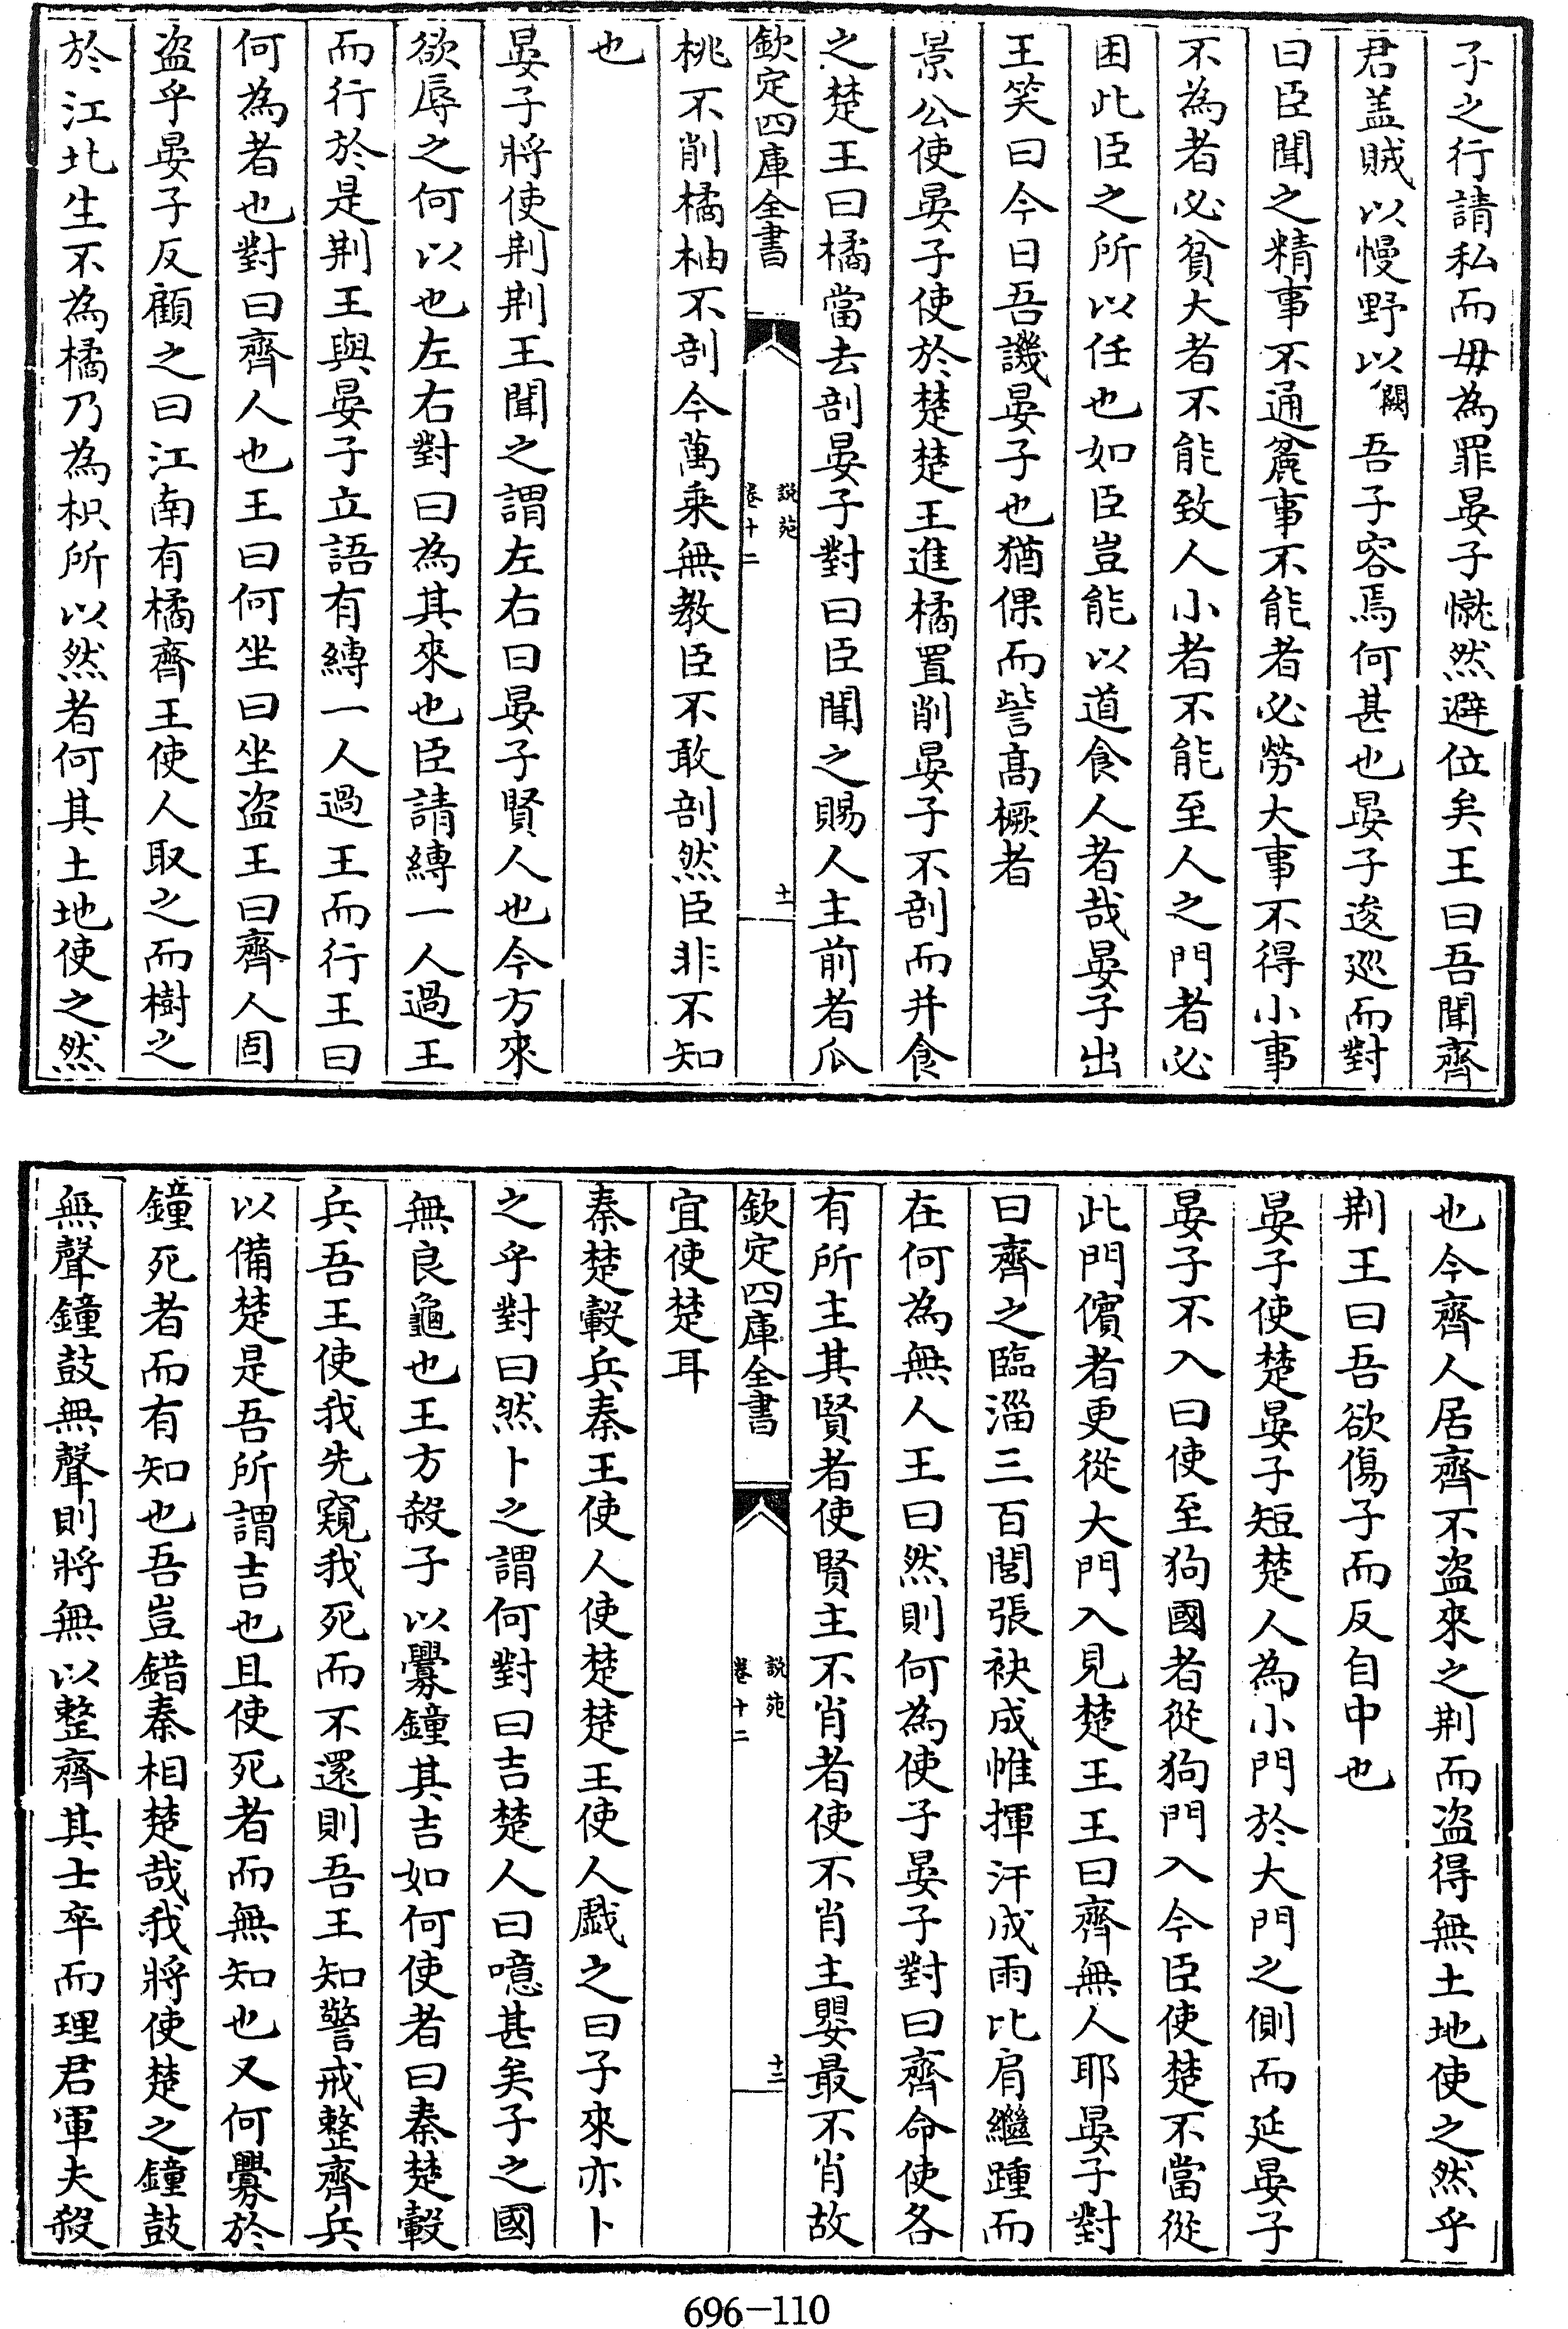 子之行請私而毋為罪晏子憱然避位矣王曰吾聞齊
君盖賊以慢野以闕吾子容焉何甚也晏子逡廵而對
曰臣聞之精事不通麄事不能者必勞大事不得小事
不為者必貧大者不能致人小者不能至人之門者必
困此臣之所以任也如臣豈能以道食人者哉晏子出
王笑曰今日吾譏晏子也猶倮而訾髙橛者
景公使晏子使於楚楚王進橘置削晏子不剖而并食
之楚王曰橘當去剖晏子對曰臣聞之賜人主前者瓜
欽定四庫全書
說苑
卷十二
十二
桃不削橘柚不剖今萬乗無教臣不敢剖然臣非不知
也
晏子將使荆荆王聞之謂左右曰晏子賢人也今方來
欲辱之何以也左右對曰為其來也臣請縛一人過王
而行於是荆王與晏子立語有縛一人過王而行王曰
何為者也對曰齊人也王曰何坐曰坐盗王曰齊人固
盗乎晏子反顧之曰江南有橘齊王使人取之而樹之
於江北生不為橘乃為枳所以然者何其土地使之然
也今齊人居齊不盗來之荆而盗得無土地使之然乎
荆王曰吾欲傷子而反自中也
晏子使楚晏子短楚人為小門於大門之側而延晏子
晏子不入曰使至狗國者從狗門入今臣使楚不當從
此門儐者更從大門入見楚王王曰齊無人耶晏子對
曰齊之臨淄三百閭張袂成帷揮汗成雨比肩繼踵而
在何為無人王曰然則何為使子晏子對曰齊命使各
有所主其賢者使賢主不肖者使不肖主嬰最不肖故
欽定四庫全書
說苑
卷十二
十三
宜使楚耳
秦楚轂兵秦王使人使楚楚王使人戱之曰子來亦卜
之乎對曰然卜之謂何對曰吉楚人曰噫甚矣子之國
無良龜也王方殺子以釁鐘其吉如何使者曰秦楚轂
兵吾王使我先窺我死而不還則吾王知警戒整齊兵
以備楚是吾所謂吉也且使死者而無知也又何釁於
鐘死者而有知也吾豈錯秦相楚哉我將使楚之鐘鼓
無聲鐘鼓無聲則將無以整齊其士卒而理君軍夫殺
696-110